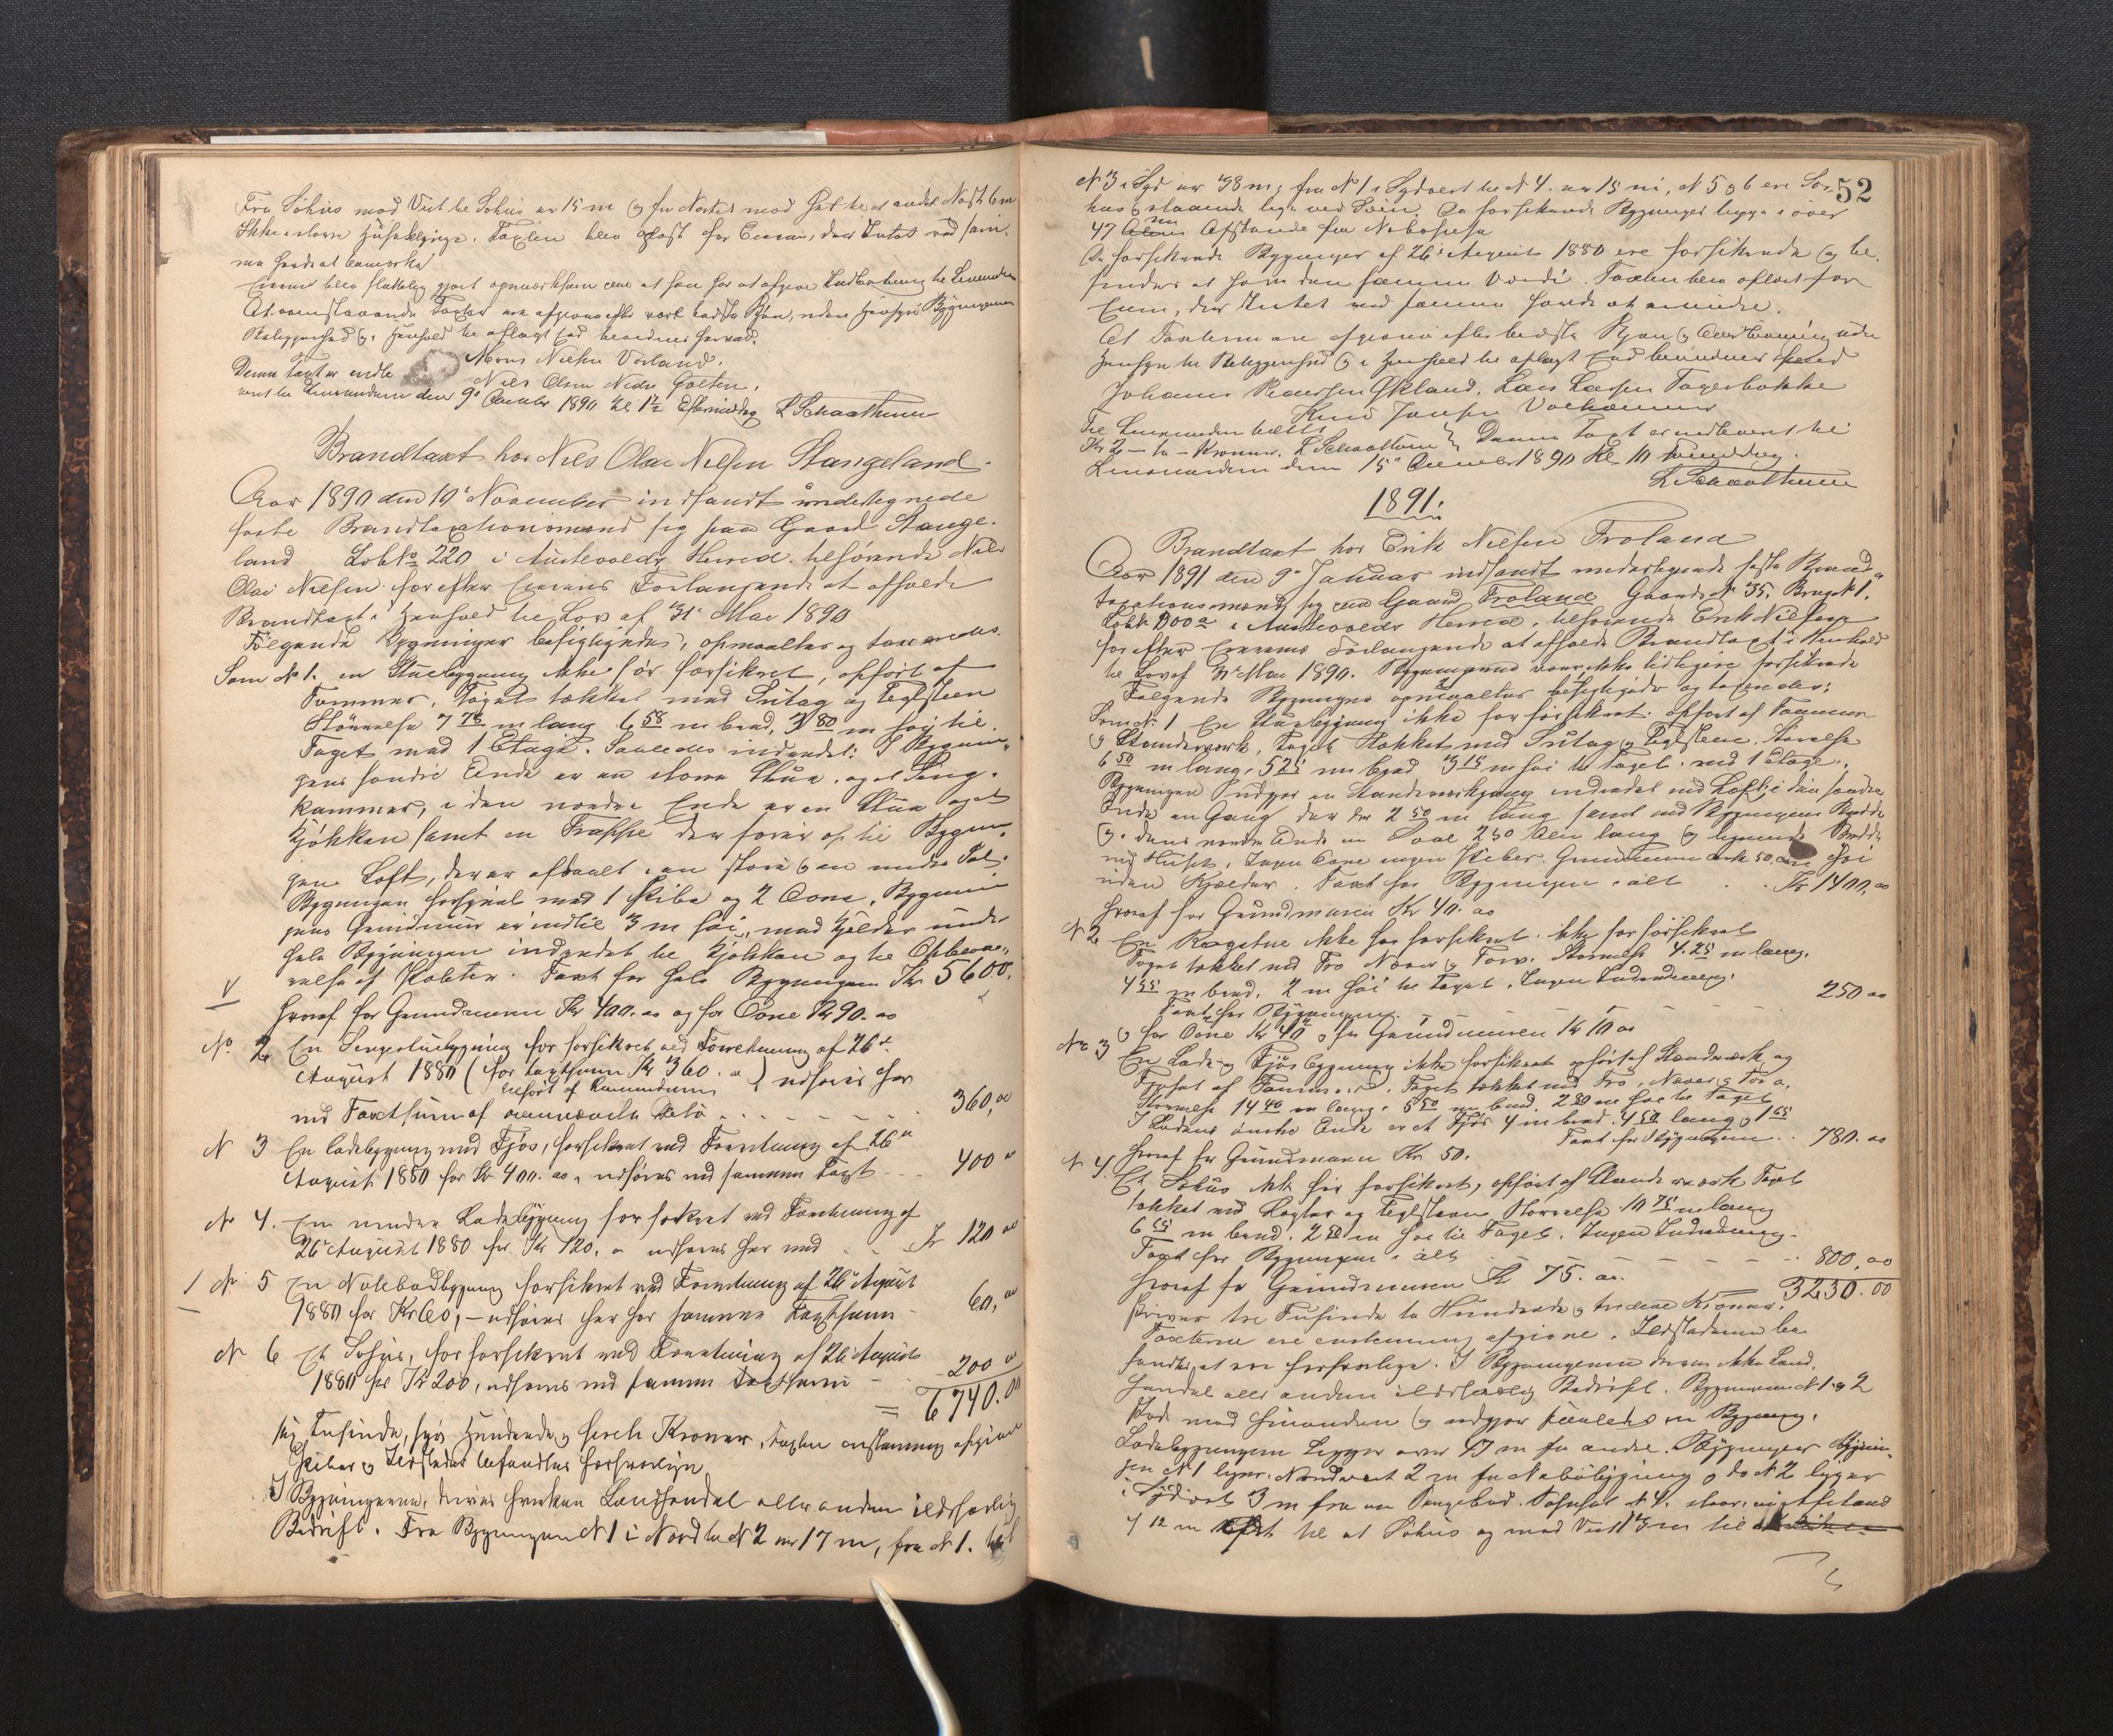 Fra Søhus mod Vest til Søhus er 15 m og fra Nøstet mod til et andet Nøst 6 m
Ikke større Taxten blev oplæst for Eieren, der Intet ved sam-
me havde at bemærke
Eieren blev gjort opmærksom paa at han har at afgive til Lensmanden
At ovenstaaende Taxter ere afgivne efter vort bedste Skjøn, uden Hensyn til Bygningernes
Beliggenhed og i Henhold til aflagt Ed bevidnes herved.
Mons Nielsen Vorland.
Denne Taxt er indle-
Niels Olsen Nedre Golten.
veret til Lensmanden den 9de December 1890 Kl. 1½ Eftermiddag L Schaathun
Brandtaxt hos Nils Olai Nilsen Stangeland.
Aar 1890 den 19de November indfandt undertegnede
faste Brandtaxationsmænd sig paa Gaard Stange-
land LøbNo 220 i Austevolds Herred tilhørende Nils
Olai Nilsen for efter Eierens Forlangende at afholde
Brandtaxt i Henhold til Lov af 31te Mai 1890
Følgende Bygninger besigtigedes, opmaaltes og taxeredes.
Som No 1. en Stuebygning ikke før forsikret, opført af
Tømmer, Taget tækket med Sutag og Teglsteen
Størrelse 7 78 m lang 6 58 m bred, 3 80 m høj til
Taget med 1 Etage. Saaledes indredet: I Bygnin-
gens søndre Ende er en større Stue og et Senge-
kammer, i den nordre Ende er en Stue og et
Kjøkken samt en Trappe der fører op til Bygnin-
gens Loft, der er afdeelt i en større og en mindre Sal.
Bygningen forsynet med 1 Pibe og 2 Ovne, Bygnin-
gens Grundmur er indtil 3 m høi, med Kjelder under
hele Bygningen indredet til Kjøkken og til Opbeva-
relse af Poteter. Taxt for hele Bygningen Kr 5600.
V
hvoraf for Grundmuren Kr 400.00 og for Ovne Kr 90.00
No. 2 En bygning før forsikret ved Forretning af 26de
August 1880 (for taxtsum Kr 360.00) udføres her
opført af
med Taxtsum af ovennævnte 360,00
N 3 En Ladebygning med Fjøs, forsikret ved Forretning af 26de
August 1880 for Kr 400.00, udføres med samme Taxt 400 00
No 4. En mindre Ladebygning før forsikret ved Forretning af
26de August 1880 for Kr 120.00 udføres her med Kr 120 00
1 No 5 En bygning forsikret ved Forretning af 26de August
1880 for Kr 60,- udføres her for samme Taxtsum 60,00
N 6 Et Søhus, før forsikret ved Forretning af 26de August
1880 for Kr 200, udføres med samme Taxtsum 200 00
= 6740.00
sex Tusinde, syv Hundrede og førti Kroner. Taxten enstemmig afgiven
Piber og Ildsteder befandtes forsvarlige
I Bygningerne drives hverken Landhandel eller anden ildsfarlig
Bedrift. Fra Bygningen N 1 i Nord til N 2 er 17 m, fra N 1. til
52
N 3 i Syd er 38 m, fra No 1 i Sydvest til N 4. er 15 m, N 5 og 6 ere Sø-
hus staaende lige ved Søen. De forsikrede Bygninger ligge i over
47 m Afstand fra Nabohuse
De forsikrede Bygninger af 26de August 1880 ere forsikrede og be-
findes at have den samme Værdi. Taxten blev oplæst for
Eieren, der Intet ved samme havde at erindre.
At Taxterne ere afgivne efter bedste Skjøn og Overbevisning uden
Hensyn til Beliggenhed og i Henhold til aflagt Ed bevidnes herved
Johannes Pedersen Økland. Lars Larsen Fagerbakke
Knud Jansen
Til Lensmanden betalt
Kr 2 - to - Kroner. L Schaathun Denne Taxt er indleveret til
Lensmanden den 15de December 1890 Kl 10 Formiddag.
L Schaathun
1891.
Brandtaxt hos Erik Nilsen Froland
Aar 1891 den 9de Januar indfandt undertegnede faste Brand-
taxationsmænd sig paa Gaard Froland Gaards No 35, Brugs No 1.
i Austevolds Herred, tilhørende Erik Nilsen
for efter Eierens Forlangende at afholde Brandtaxt i Henhold
til Lov af 31te Mai 1890. Bygningerne vare ikke tidligere forsikrede
Følgende Bygninger opmaaltes, besigtigedes og taxeredes:
Som No 1 En Stuebygning ikke før forsikret. opført af Tømmer
og Standerværk, Taget tækket med Sutag og Teglsteen. Størrelse
6 50 m lang, 5 25 m bred 3 15 m høi til Taget med 1 Etage.
Bygningen udgjør en indredet med Loft, i den søndre
Ende en Gang der er 2 50 m lang samt med Bygningens Bredde
og i dens nordre Ende en 2 50 lang og lignende Bredde
med Huset. Ingen Ovne ingen Piber. Grundmuren er 50 høi
uden Kjelder. Taxt for Bygningen i alt Kr 1400,00
hvoraf for Grundmuren Kr 40.00
N 2 En Røgstue ikke før forsikret. ikke før forsikret
Taget tækket med Tro Næver og Torv. Størrelse 4.25 m lang,
4 55 m bred, 2 m høi til Taget. Ingen Indredning.
Taxt for Bygningen 250 00
og for Ovne Kr 40 og for Grundmuren Kr 10 00
No 3 En Lade og Fjøsbygning ikke forsikret opført af Standværk og
Fjøset af Tømmer. Taget tækket med Tro, Næver og Torv.
Størrelse 14 40 m lang, 5 50 m bred 2 80 m høi til Taget
I Ladens Ende er et Fjøs 4 m bred. 4 50 lang og 1 65
Taxt for Bygningen 780.00
hvoraf for Grundmuren Kr 50.
N 4. Et Søhus ikke før forsikret, opført af Standerværk Taget
tækket med Lægter og Teglsteen Størrelse 10 75 m lang
6 65 m bred. 2 80 m høi til Taget. Ingen Indredning.
Taxt for Bygningen i alt 800,00
hvoraf for Grundmuren Kr 75.00. 3230.00
skriver tre Tusinde to Hundrede og tredive Kroner.
Taxterne ere enstemmig afgivne. Ildstederne be-
fandtes at være forsvarlige. I Bygningerne drives ikke Land-
handel eller anden ildsfarlig Bedrift. Bygningerne N 1 og 2
støde mod hinanden og udgjør saaledes en Bygning.
Ladebygningen ligger over 47 m fra andre Bygninger. Bygnin-
gen N 1 ligger i Nordvest 2 m fra Nabobygning og do N 2 ligger
i Sydvest 3 m fra en Søhuset N 4. staar i Afstand
af 12 m til et Søhus og mod Vest 13 m til